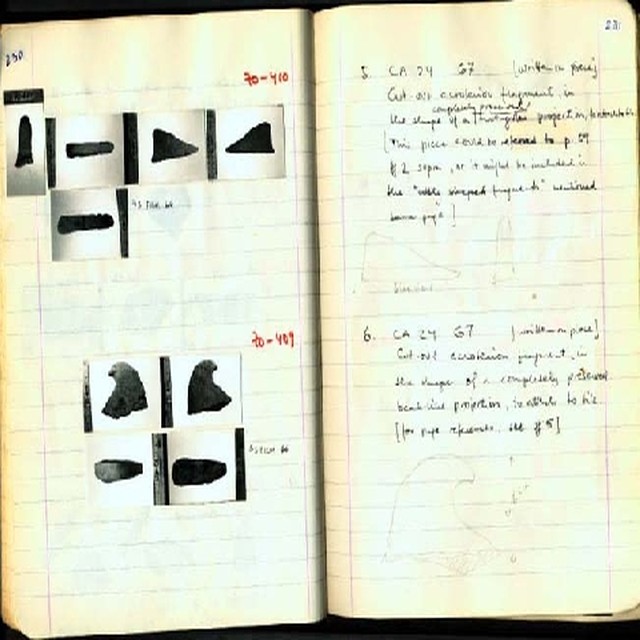 230
70-410
70-409
231
5. CA 24 G7 [written on piece]
Cut-out acroterion fragment, in
completely preserved
the shape of a triangular projection, to attach to
[This piece could be referred to p. 
# 2 supra, or it might be included in
the " shaped fragments" mentioned
page]
6. CA 24 G7 [written on piece]
Cut-out acroterion fragment, in
the shape of a completely preserved
beak-like projection, to attach to tile
[for page references, see # 5]